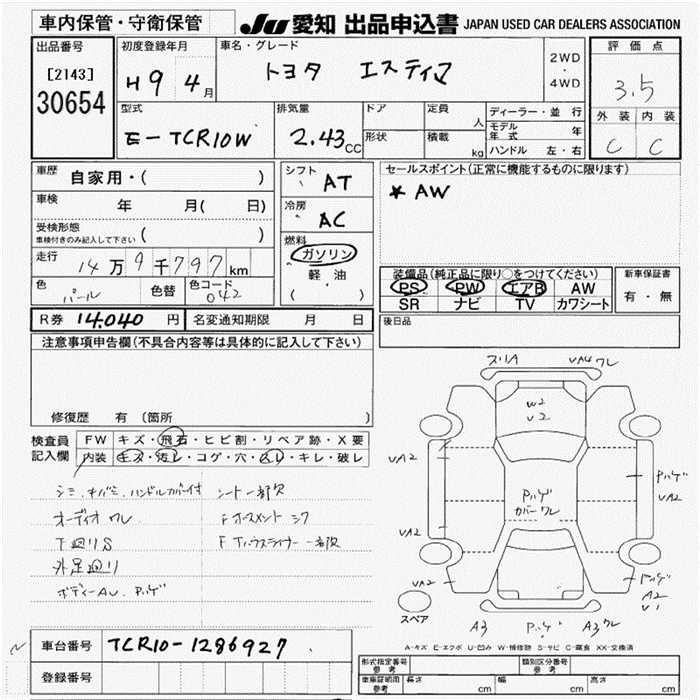 車内保管・守衛保管
JU 愛知 出品申込書 JAPAN USED CAR DEALERS ASSOCIATION
出品番号
[2143]
30654
初度登録年月
H9 4月
車名・グレード
トヨタ エスティマ
2WD
・
4WD
評価点
3.5
外装 内装
C C
型式
E-TCR10W
排気量
2.43CC
ドア
定員 人
形状
積載 kg
ディーラー・並行
モデル年式 年
ハンドル 左・右
車歴 自家用・( )
車検 年 月( 日)
受検形態
車検付きのみ記入して下さい ( )
走行 14万9千797km
色 パール 色替 色コード 042
シフト AT
冷房 AC
燃料
ガソリン
軽油
( )
セールスポイント(正常に機能するものに限ります)
* AW
装備品(純正品に限り○をつけてください)
PS PW エアB AW
SR ナビ TV カワシート
新車保証書
有・無
R券 14,040 円 名変通知期限 月 日
後日品
注意事項申告欄(不具合内容等は具体的に記入して下さい)
修復歴 有(箇所
検査員記入欄
FW キズ・飛石・ヒビ割・リペア跡・X要
内装 キズ・汚レ・コゲ・穴・スレ・キレ・破レ
シミ、キバミ、ハンドルカバー付 シート一部欠
オーディオワレ
下廻りS
外足廻り
ボディーAU、Pハゲ
スリA VA4ワレ
W2
V2
VA2
Pハゲ
VA2
Pハゲ
カバーワレ
VA2
VA2
Pハゲ
A2
V1
スペア
A3 Pハゲ A3ワレ
A-キズ E-エクボ U-凹み W-補修跡 S-サビ C-腐食 XX-交換済
車台番号 TCR10-1286927
登録番号
形式指定番号 参考
類別区分番号 参考
車庫証明用 参考
長さ cm 幅 cm 高さ cm